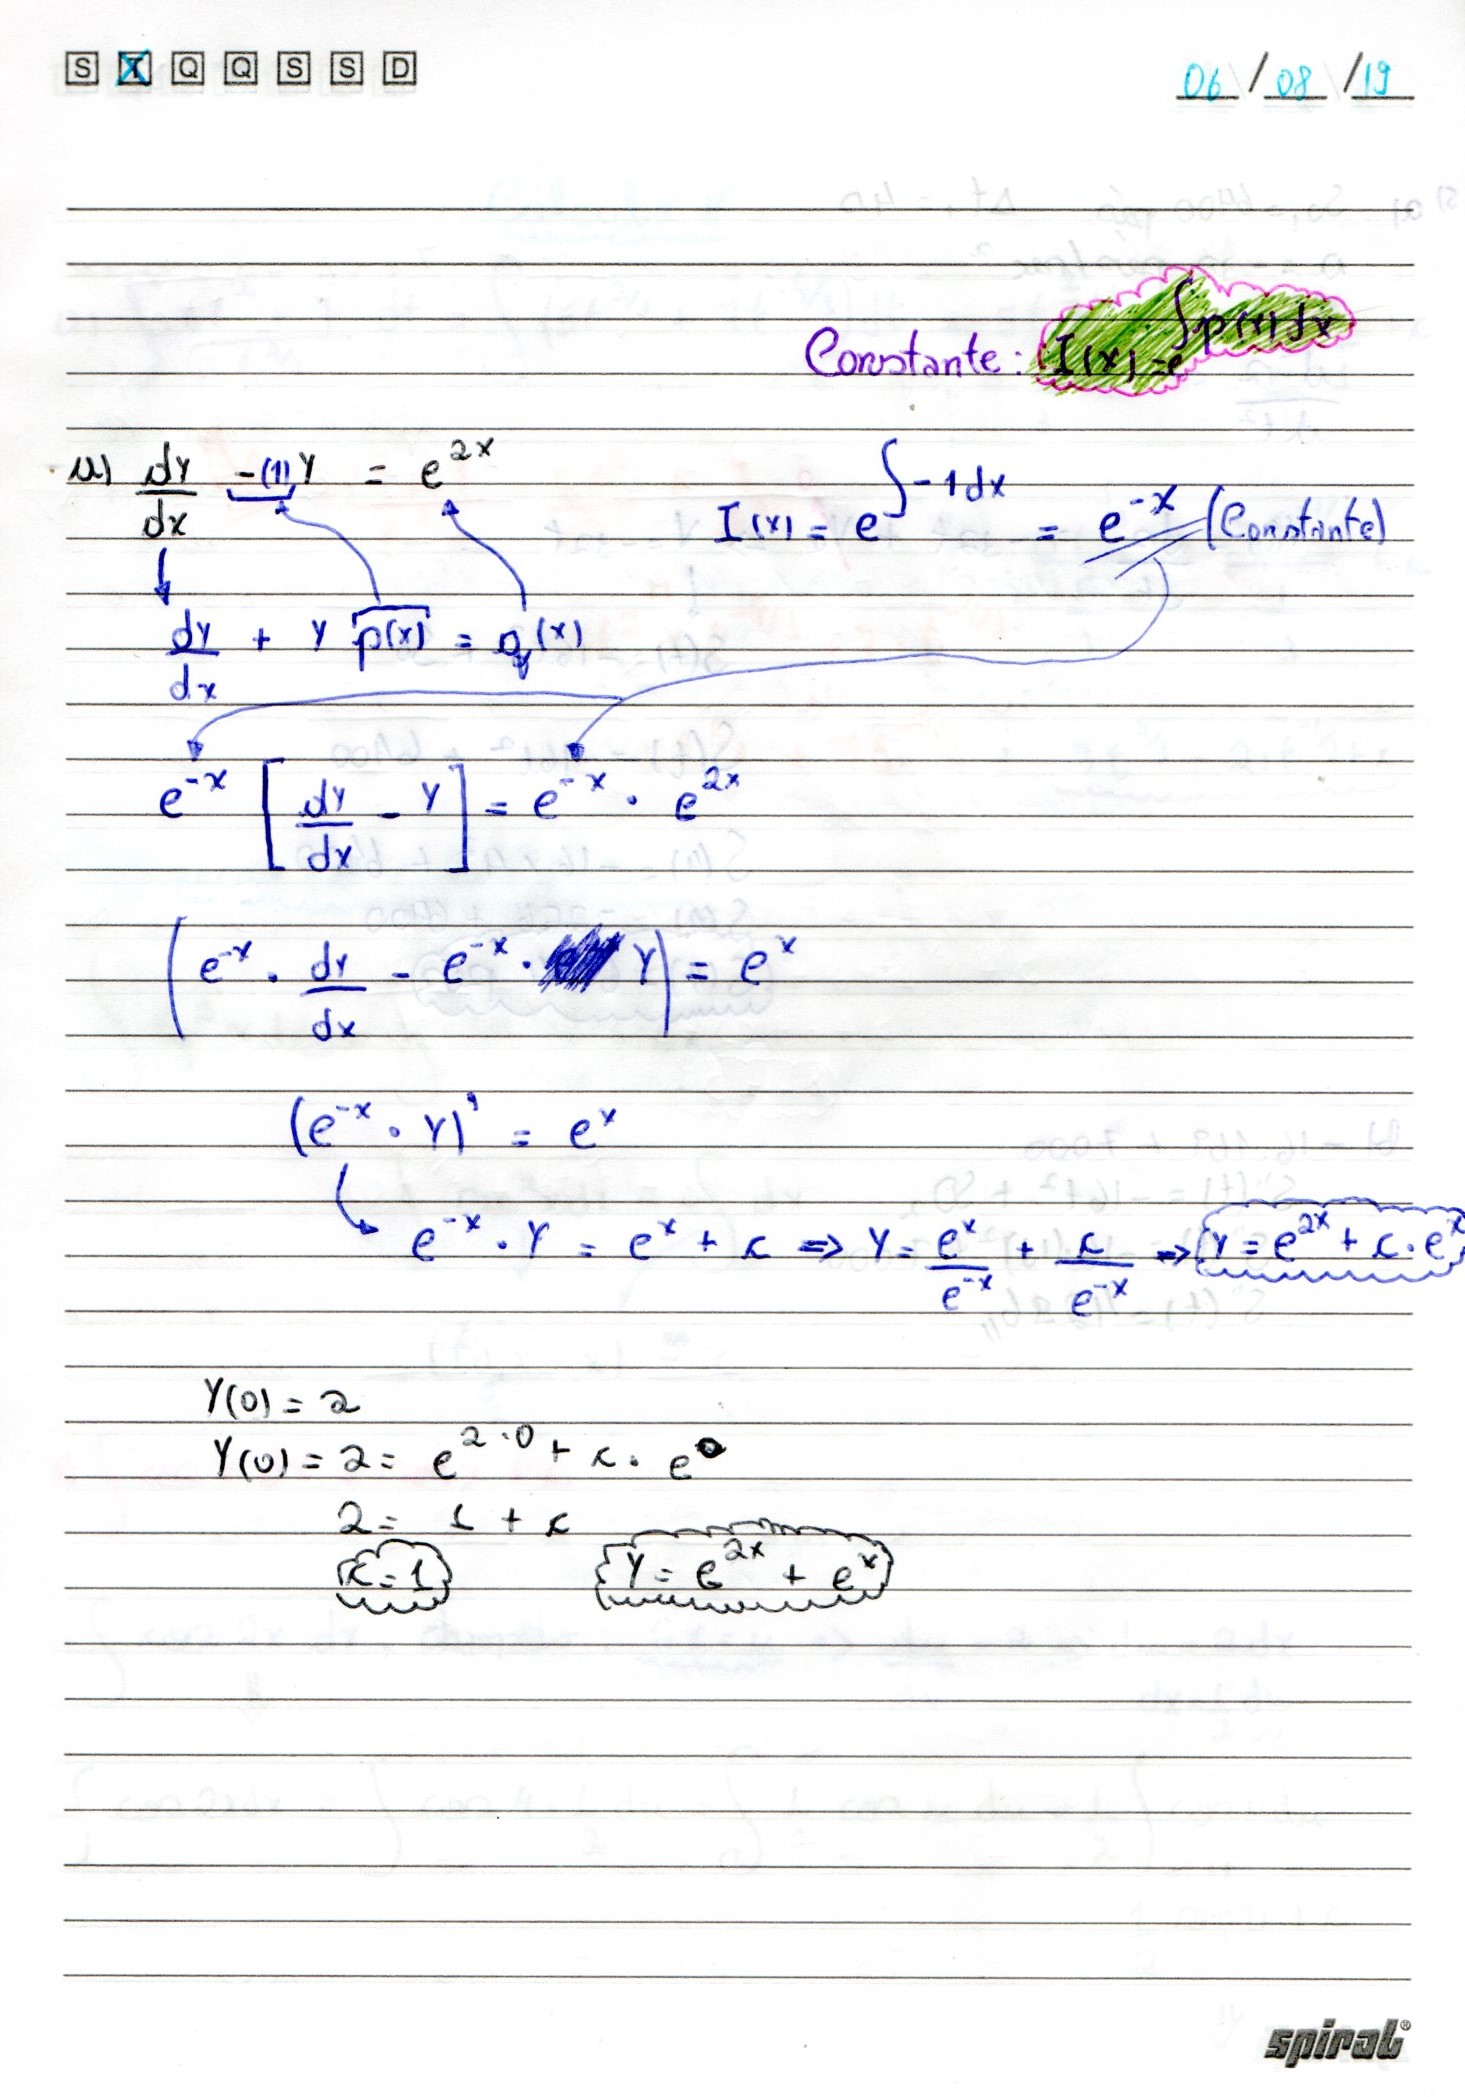 S T Q Q S S D 06/08/19
Constante: I(x) = e^∫p(x)dx
a) dy/dx -(1)y = e^2x I(x) = e^∫-1dx = e^-x (Constante)
dy/dx + y p(x) = q(x)
e^-x [dy/dx - y] = e^-x · e^2x
(e^-x · dy/dx - e^-x · y) = e^x
(e^-x · y)' = e^x
e^-x · y = e^x + c ⇒ y = e^x/e^-x + c/e^-x ⇒ y = e^2x + c · e^x
y(0) = 2
y(0) = 2 = e^2·0 + c · e^0
2 = 1 + c
c = 1 y = e^2x + e^x
spiral®